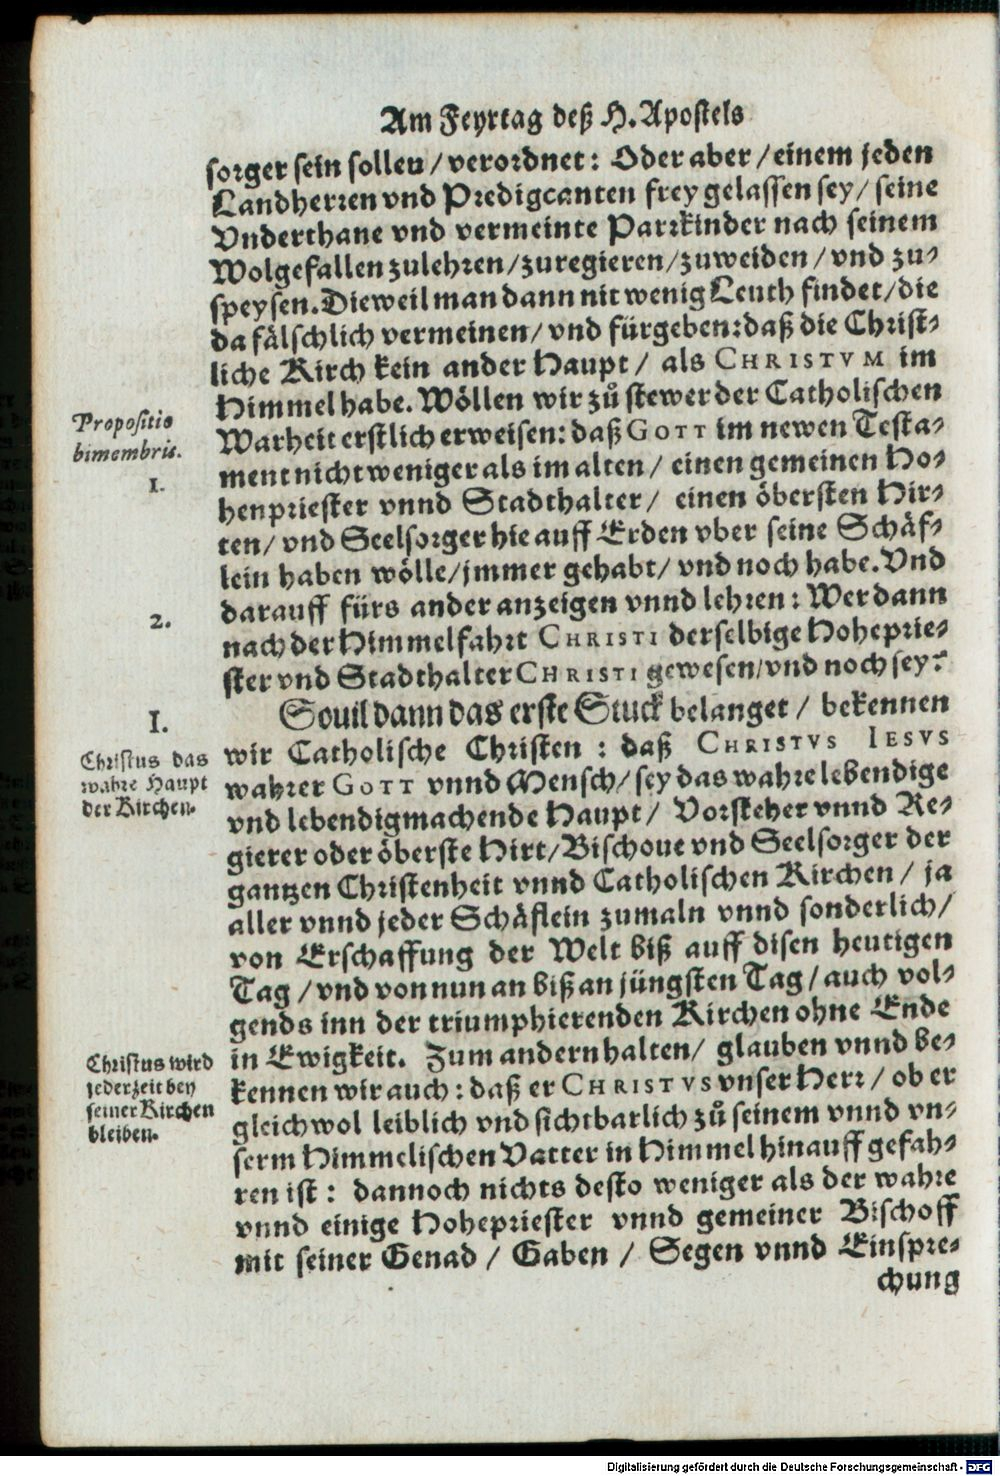 Am Feyrtag deß H. Apostels
sorger sein sollen / verordnet: Oder aber / einem jeden
Landherren vnd Predigcanten frey gelassen sey / seine
Vnderthane vnd vermeinte Parrkinder nach seinem
Wolgefallen zulehren / zuregieren / zuweiden / vnd zu-
speysen. Dieweil man dann nit wenig Leuth findet / die
da fälschlich vermeinen / vnd fürgeben: daß die Christ-
liche Kirch kein ander Haupt / als CHRISTVM im
Himmel habe. Wöllen wir zů stewer der Catholischen
Propositio
bimembris.
Warheit erstlich erweisen: daß GOTT im newen Testa-
ment nicht weniger als im alten / einen gemeinen Ho-
1.
henpriester vnnd Stadthalter / einen öbersten Hir-
ten / vnd Seelsorger hie auff Erden vber seine Schäf-
lein haben wölle / jmmer gehabt / vnd noch habe. Vnd
darauff fürs ander anzeigen vnnd lehren: Wer dann
2.
nach der Himmelfahrt CHRISTI derselbige Hoheprie-
ster vnd Stadthalter CHRISTI gewesen / vnd noch sey?
I.
Souil dann das erste Stuck belanget / bekennen
Christus das
wahre Haupt
der Kirchen.
wir Catholische Christen: daß CHRISTVS IESVS
wahrer GOTT vnnd Mensch / sey das wahre lebendige
vnd lebendigmachende Haupt / Vorsteher vnnd Re-
gierer oder öberste Hirt / Bischoue vnd Seelsorger der
gantzen Christenheit vnnd Catholischen Kirchen / ja
aller vnnd jeder Schäflein zumaln vnnd sonderlich /
von Erschaffung der Welt biß auff disen heutigen
Tag / vnd von nun an biß an jüngsten Tag / auch vol-
gends inn der triumphierenden Kirchen ohne Ende
Christus wird
jederzeit bey
seiner Kirchen
bleiben.
in Ewigkeit. Zum andern halten / glauben vnnd be-
kennen wir auch: daß er CHRISTVS vnser Herr / ob er
gleichwol leiblich vnd sichtbarlich zů seinem vnnd vn-
serm Himmelischen Vatter in Himmel hinauff gefah-
ren ist: dannoch nichts desto weniger als der wahre
vnnd einige Hohepriester vnnd gemeiner Bischoff
mit seiner Genad / Gaben / Segen vnnd Einspre-
chung
Digitalisierung gefördert durch die Deutsche Forschungsgemeinschaft - DFG